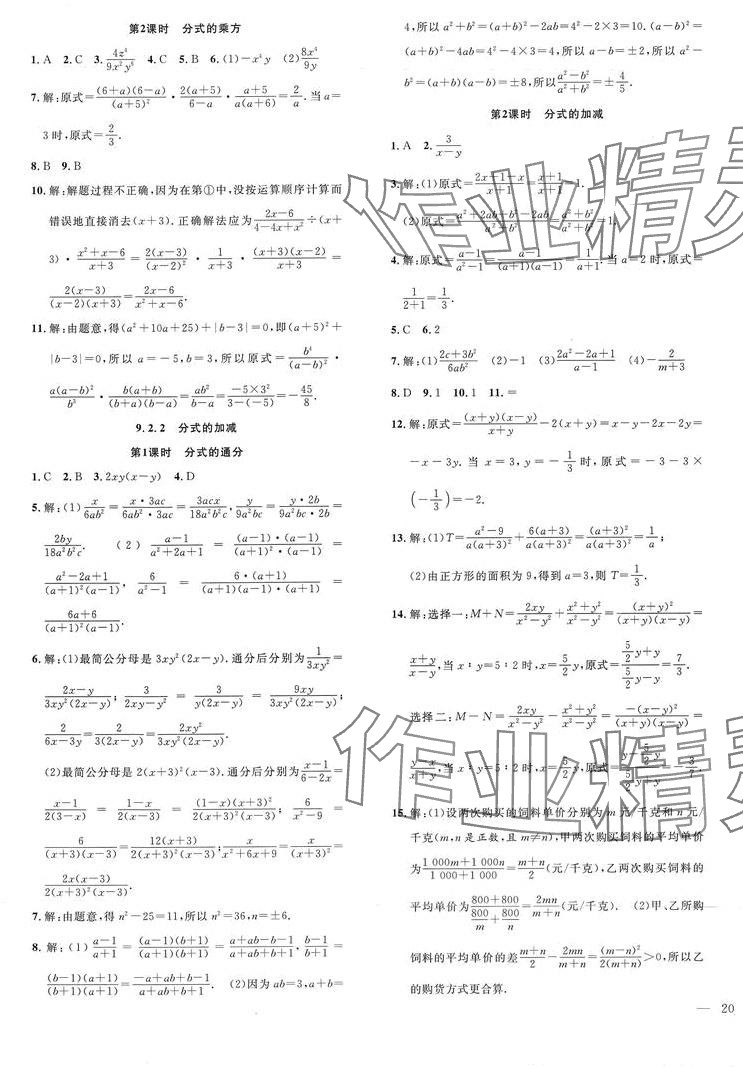 第2课时 分式的乘方
1. A 2. C 3. \frac{4z^4}{9x^2y^6} 4. C 5. B 6. (1) -x^4y (2) \frac{8x^4}{9y}
7. 解:原式=\frac{(6+a)(6-a)}{(a+5)^2}·\frac{2(a+5)}{6-a}·\frac{a+5}{a(a+6)}=\frac{2}{a}. 当 a=
3时,原式=\frac{2}{3}.
8. B 9. B
10. 解:解题过程不正确,因为在第①中,没按运算顺序计算而
错误地直接消去(x+3). 正确解法应为\frac{2x-6}{4-4x+x^2}÷(x+
3)·\frac{x^2+x-6}{x+3}=\frac{2(x-3)}{(x-2)^2}·\frac{1}{x+3}·\frac{(x+3)(x-2)}{x+3}=
\frac{2(x-3)}{(x-2)(x+3)}=\frac{2x-6}{x^2+x-6}.
11. 解:由题意,得(a^2+10a+25)+|b-3|=0,即(a+5)^2+
|b-3|=0,所以 a=-5,b=3,所以原式=\frac{b^4}{(a-b)^2}·
\frac{a(a-b)^2}{b^3}·\frac{b(a+b)}{(b+a)(b-a)}=\frac{ab^2}{b-a}=\frac{-5×3^2}{3-(-5)}=-\frac{45}{8}.
9.2.2 分式的加减
第1课时 分式的通分
1. C 2. B 3. 2xy(x-y) 4. D
5. 解:(1)\frac{x}{6ab^2}=\frac{x·3ac}{6ab^2·3ac}=\frac{3acx}{18a^2b^2c},\frac{y}{9a^2bc}=\frac{y·2b}{9a^2bc·2b}=
\frac{2by}{18a^2b^2c}. (2)\frac{a-1}{a^2+2a+1}=\frac{(a-1)·(a-1)}{(a+1)^2·(a-1)}=
\frac{a^2-2a+1}{(a+1)^2(a-1)},\frac{6}{a^2-1}=\frac{6·(a+1)}{(a+1)^2(a-1)}=
\frac{6a+6}{(a+1)^2(a-1)}.
6. 解:(1)最简公分母是 3xy^2(2x-y). 通分后分别为\frac{1}{3xy^2}=
\frac{2x-y}{3xy^2(2x-y)};\frac{3}{2xy-y^2}=\frac{3}{y(2x-y)}=\frac{9xy}{3xy^2(2x-y)};
\frac{2}{6x-3y}=\frac{2}{3(2x-y)}=\frac{2xy^2}{3xy^2(2x-y)}.
(2)最简公分母是 2(x+3)^2(x-3). 通分后分别为\frac{x-1}{6-2x}=
-\frac{x-1}{2(3-x)}=\frac{1-x}{2(x-3)}=\frac{(1-x)(x+3)^2}{2(x+3)^2(x-3)};\frac{6}{x^2-9}=
\frac{6}{(x+3)(x-3)}=\frac{12(x+3)}{2(x+3)^2(x-3)};\frac{x}{x^2+6x+9}=\frac{x}{(x+3)^2}=
\frac{2x(x-3)}{2(x+3)^2(x-3)}.
7. 解:由题意,得 n^2-25=11,所以 n^2=36,n=±6.
8. 解:(1)\frac{a-1}{a+1}=\frac{(a-1)(b+1)}{(a+1)(b+1)}=\frac{a+ab-b-1}{a+ab+b+1},\frac{b-1}{b+1}=
\frac{(b-1)(a+1)}{(b+1)(a+1)}=\frac{-a+ab+b-1}{a+ab+b+1}. (2)因为 ab=3,a+b=
4,所以 a^2+b^2=(a+b)^2-2ab=4^2-2×3=10.(a-b)^2=
(a+b)^2-4ab=4^2-4×3=4,所以 a-b=±2,所以 a^2-
b^2=(a+b)(a-b)=±8,所以\frac{a^2-b^2}{a^2+b^2}=±\frac{4}{5}.
第2课时 分式的加减
1. A 2. \frac{3}{x-y}
3. 解:(1)原式=\frac{2x+1-x}{x+1}=\frac{x+1}{x+1}=1.
(2)原式=
4. 解:原式=\frac{a-1}{a^2-1}=\frac{a-1}{(a+1)(a-1)}=\frac{1}{a+1}. 当 a=2 时,原式=
\frac{1}{2+1}=\frac{1}{3}.
5. C 6. 2
7. 解:(1)\frac{2c+3b^2}{6ab^2} (2)-1 (3)\frac{2a^2-2a+1}{a-1} (4)-\frac{2}{m+3}
8. D 9. 1 10. 1 11. =
12. 解:原式=\frac{(x+y)(x-y)}{x+y}-2(x+y)=x-y-2x-2y=
-x-3y. 当 x=3,y=-\frac{1}{3}时,原式=-3-3×
(-\frac{1}{3})=-2.
13. 解:(1)T=\frac{a^2-9}{a(a+3)^2}+\frac{6(a+3)}{a(a+3)^2}=\frac{(a+3)^2}{a(a+3)^2}=\frac{1}{a}.
(2)由正方形的面积为 9,得到 a=3,则 T=\frac{1}{3}.
14. 解:选择一:M+N=\frac{2xy}{x^2-y^2}+\frac{x^2+y^2}{x^2-y^2}=\frac{(x+y)^2}{(x+y)(x-y)}=
\frac{x+y}{x-y},当 x∶y=5∶2时,x=\frac{5}{2}y,原式=\frac{\frac{5}{2}y+y}{\frac{5}{2}y-y}=\frac{7}{3}.
选择二:M-N=\frac{2xy}{x^2-y^2}-\frac{x^2+y^2}{x^2-y^2}=\frac{-(x-y)^2}{(x+y)(x-y)}=
\frac{y-x}{x+y},当 x∶y=5∶2时,x=\frac{5}{2}y,原式=\frac{y-\frac{5}{2}y}{\frac{5}{2}y+y}=-\frac{3}{7}.
15. 解:(1)设两次购买的饲料单价分别为 m 元/千克和 n 元/
千克(m,n 是正数,且 m≠n),甲两次购买饲料的平均单价
为\frac{1 000m+1 000n}{1 000+1 000}=\frac{m+n}{2}(元/千克),乙两次购买饲料的
平均单价为\frac{800+800}{\frac{800}{m}+\frac{800}{n}}=\frac{2mn}{m+n}(元/千克). (2)甲、乙所购
饲料的平均单价的差\frac{m+n}{2}-\frac{2mn}{m+n}=\frac{(m-n)^2}{2(m+n)}>0,所以乙
的购货方式更合算.
— 20
作业精灵
作业精灵